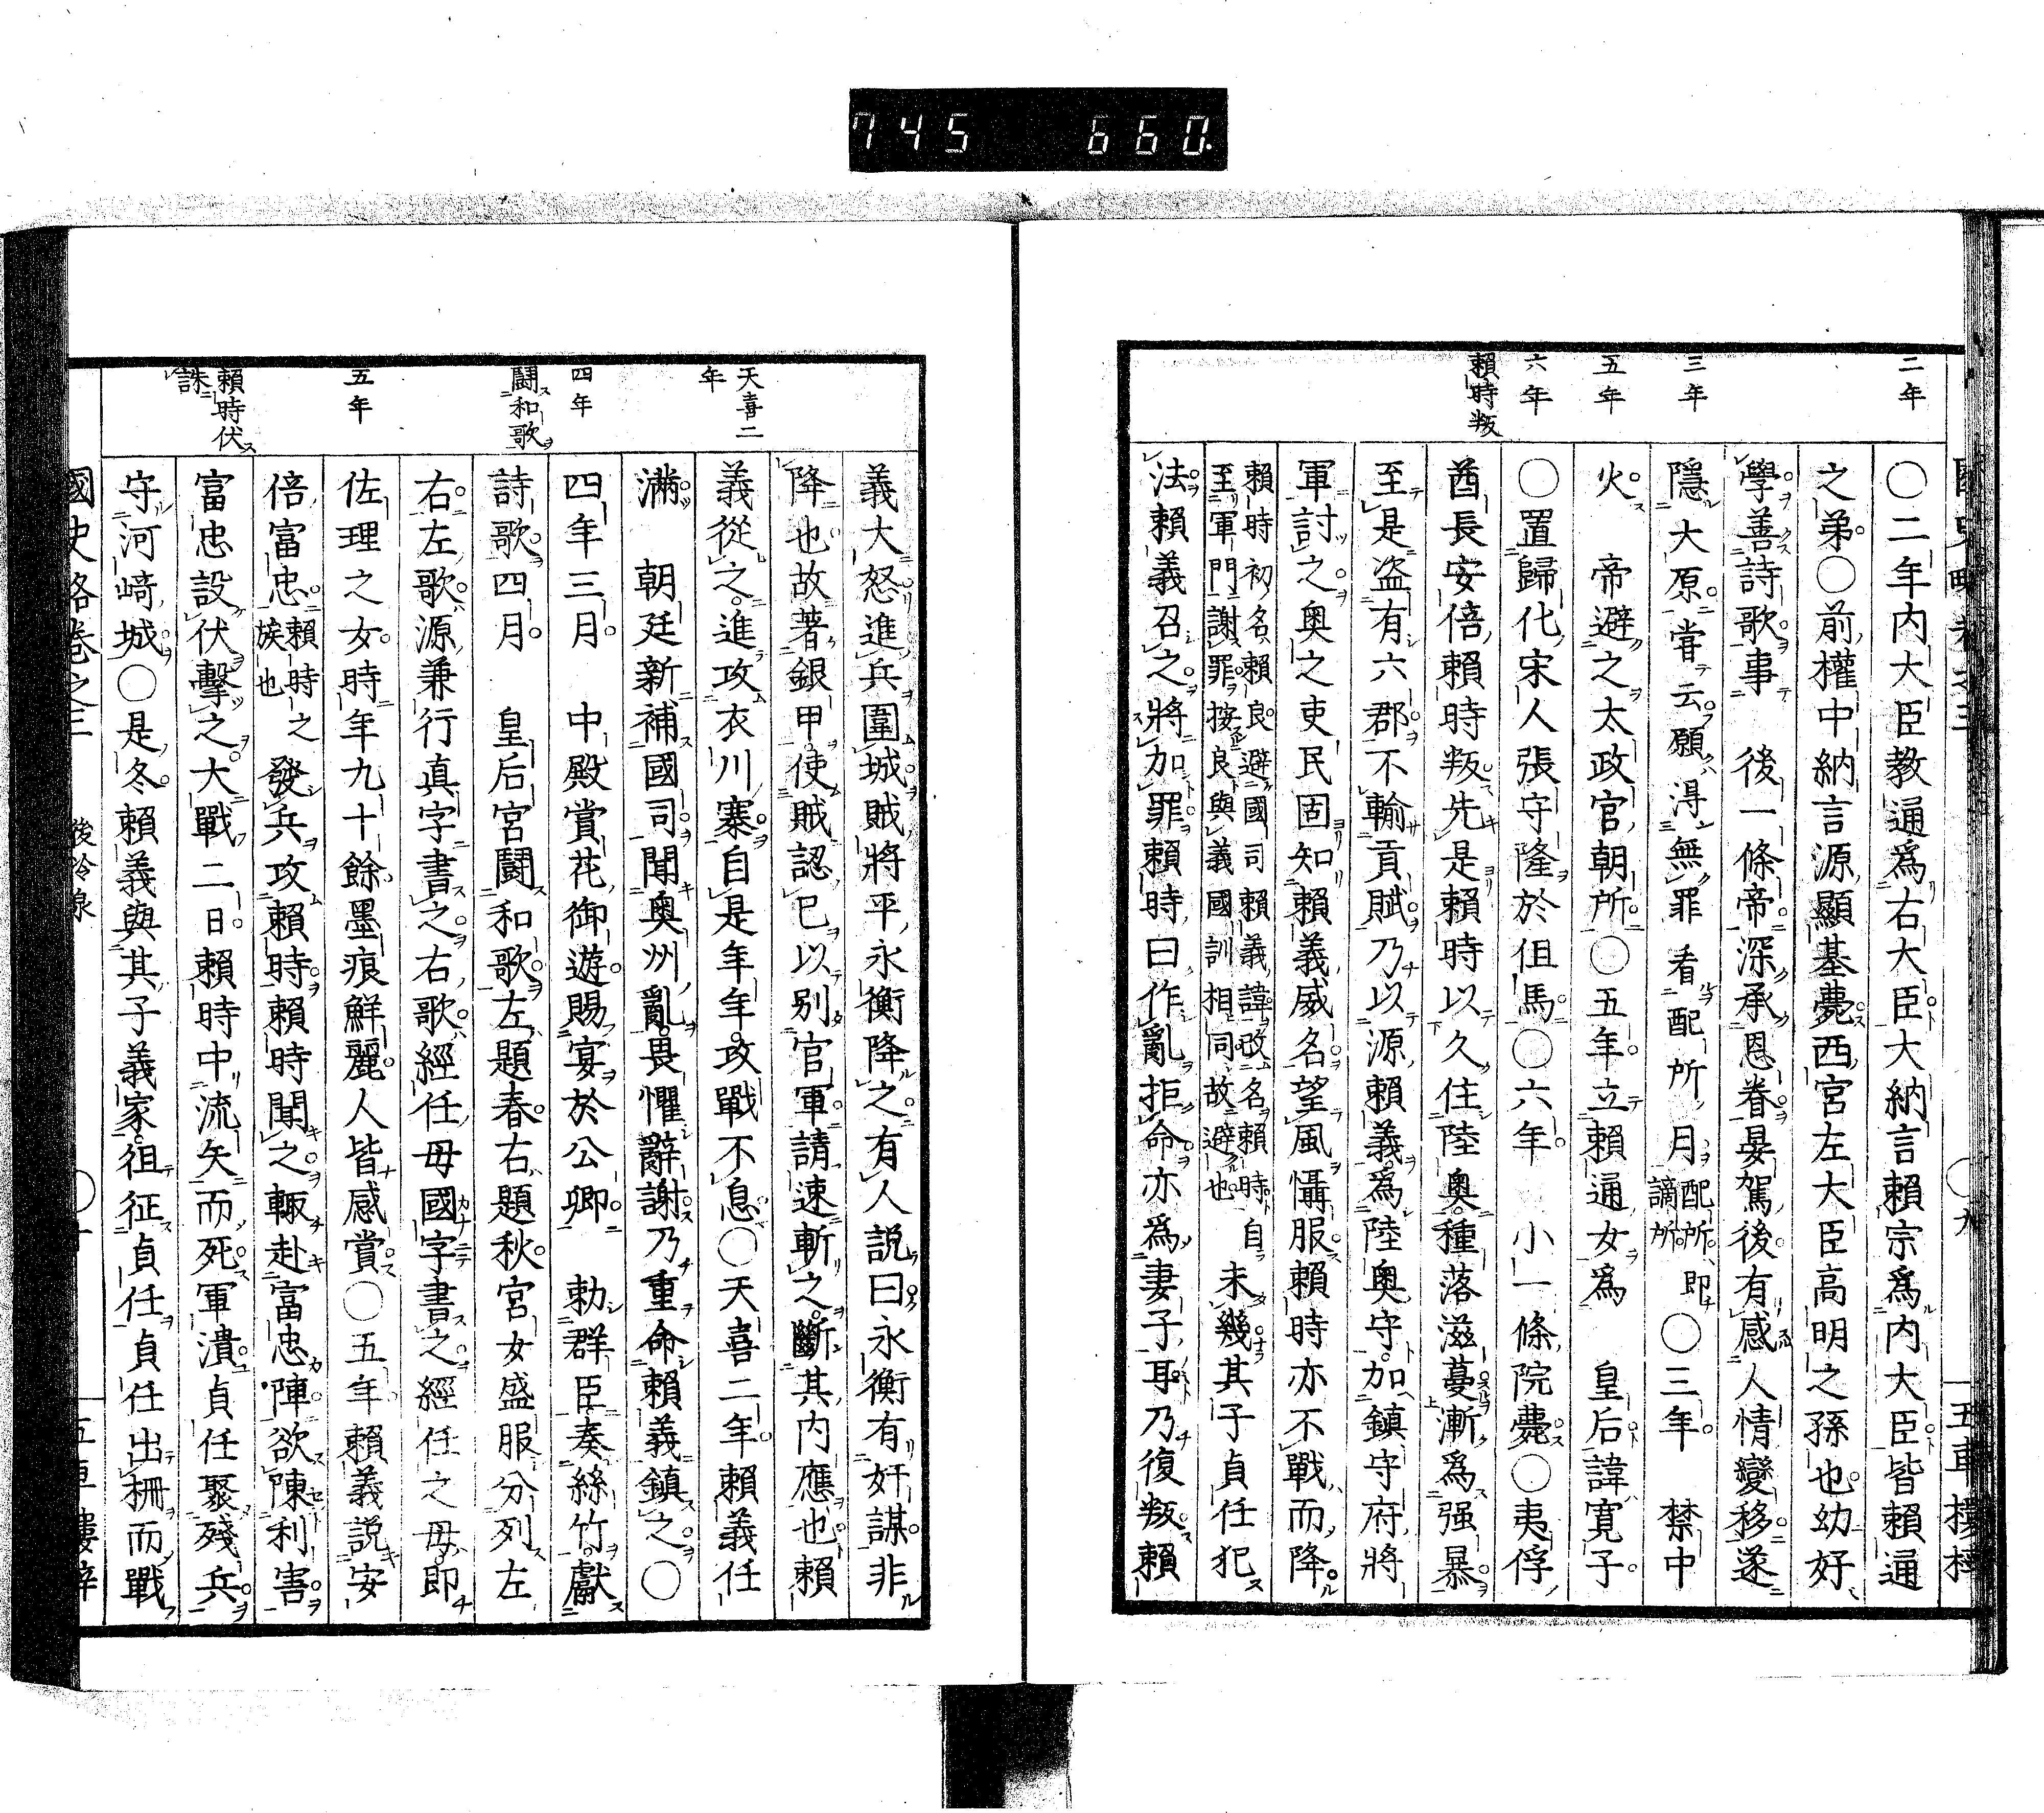 745 660.
二年
三年
五年
六年
賴時叛
〇二年内大臣教通爲右大臣大納言賴宗爲内大臣皆賴通
之弟〇前權中納言源顯基薨西宮左大臣高明之孫也幼好
學善詩歌事 後一條帝深承恩眷晏駕後有感人情變移遂
隱大原嘗云願淂無罪看配所月配所即謫所〇三年 禁中
火 帝避之太政官朝所〇五年立賴通女爲 皇后諱寛子
〇置歸化宋人張守隆於伹馬〇六年 小一條院薨〇夷俘
酋長安倍賴時叛先是賴時以久住陸奥種落滋蔓漸爲强暴
至是盗有六郡不輸貢賦乃以源賴義爲陸奥守加鎮守府將
軍討之奥之吏民固知賴義威名望風懾服賴時亦不戰而降
賴時初名賴良避國司賴義諱改名賴時自
至軍門謝罪按良與義國訓相同故避也
未幾其子貞任犯
法賴義召之將加罪賴時曰作亂拒命亦爲妻子耳乃復叛賴
天喜二年
四年
鬪和歌
五年
賴時伏誅
義大怒進兵圍城賊將平永衡降之有人説曰永衡有奸謀非
降也故著銀甲使賊認已以别官軍請速斬之斷其内應也賴
義從之進攻衣川寨自是年年攻戰不息〇天喜二年賴義任
滿 朝廷新補國司聞奥州亂畏懼辭謝乃重命賴義鎮之〇
四年三月 中殿賞花御遊賜宴於公卿 勅群臣奏絲竹獻
詩歌四月 皇后宮鬪和歌左題春右題秋宮女盛服分列左
右左歌源兼行真字書之右歌經任母國字書之經任之母即
佐理之女時年九十餘墨痕鮮麗人皆感賞〇五年賴義説安
倍富忠賴時之族也發兵攻賴時賴時聞之輙赴富忠陣欲陳利害
富忠設伏擊之大戰二日賴時中流矢而死軍潰貞任聚殘兵
守河﨑城〇是冬賴義與其子義家徂征貞任貞任出柵而戰
國史略卷之三 後冷泉